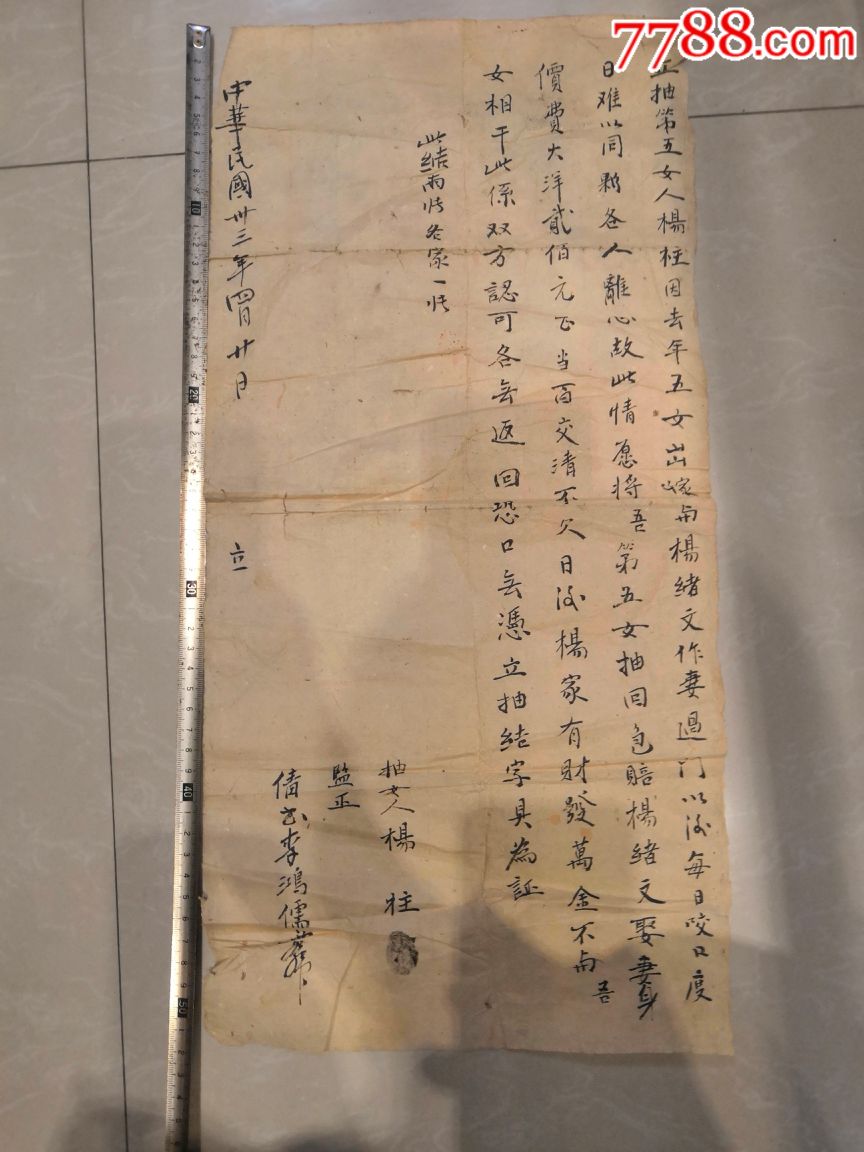 7788.com
立抽第五女人楊柱因去年五女出嫁與楊緒文作妻過门以後每日咬口度
日难以同夥各人離心故此情愿将吾第五女抽回包賠楊緒文娶妻身
價費大洋貳佰元正当面交清不欠日後楊家有財發萬金不與吾
女相干此係双方認可各無返回恐口無憑立抽结字具為証
此结兩张各家一张
抽女人楊 柱
監正
倩书李鴻儒
中華民國卅三年四月廿日 立